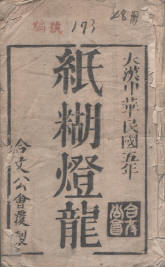 編號 193
大漢中華民國五年
紙糊燈龍
合文公會覆製